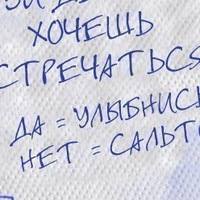 ХОЧЕШЬ
СТРЕЧАТЬСЯ
ДА = УЛЫБНИСЬ
НЕТ = САЛЬТО